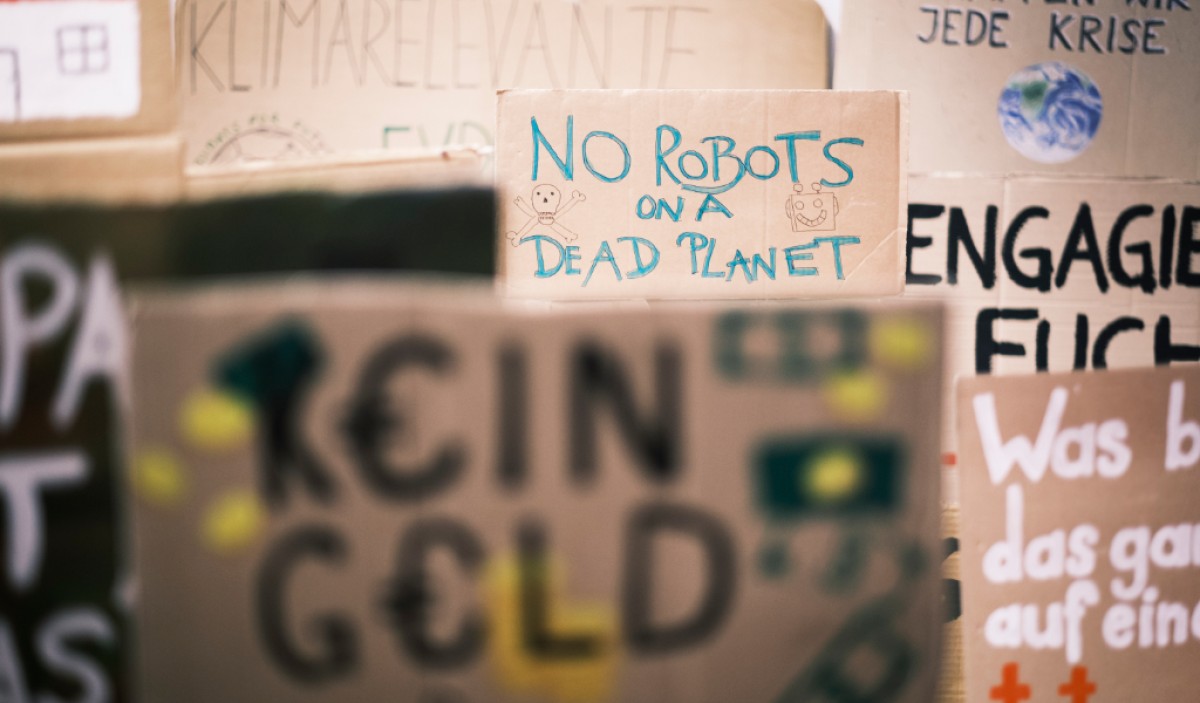 KLIMARELEVANTE
JEDE KRISE
NO ROBOTS
ON A
DEAD PLANET
ENGAGIE
EUCH
PA
T
AS
K€IN
G€LD
Was b
das ga
auf ein